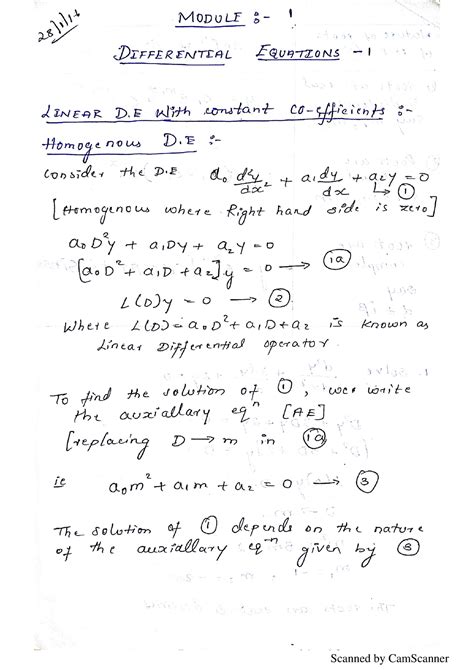 28/1/17
MODULE :- 1
DIFFERENTIAL EQUATIONS -1
LINEAR D.E with constant co-efficients :-
Homogenous D.E :-
Consider the D.E a₀ d²y/dx² + a₁ dy/dx + a₂y = 0 → ①
[Homogenous where Right hand side is zero]
a₀D²y + a₁Dy + a₂y = 0
[a₀D² + a₁D + a₂]y = 0 → (1a)
L(D)y = 0 → ②
Where L(D) = a₀D² + a₁D + a₂ is known as
Linear Differential operator.
To find the solution of ①, we write
the auxiallary eqⁿ [AE]
[replacing D → m in (1a)
ie a₀m² + a₁m + a₂ = 0 → ③
The solution of ① depends on the nature
of the auxiallary eqⁿ given by ③
Scanned by CamScanner